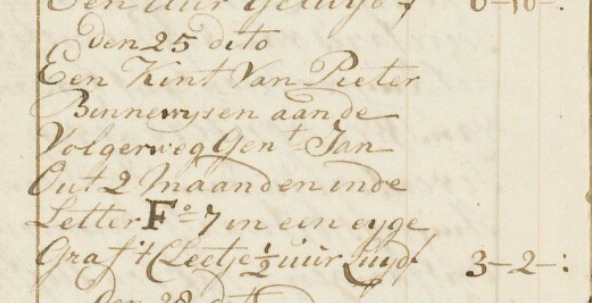 Een uur geluyt 0-10-:
den 25 dito
Een Kint Van Pieter
Binnewysen aan de
Volgerweg Gen.t Jan
Out 2 Maanden inde
Letter F:o 7 in een eyge
Graf 't Cleetje ½ uur Luyd 3-2-:
den 28 dito